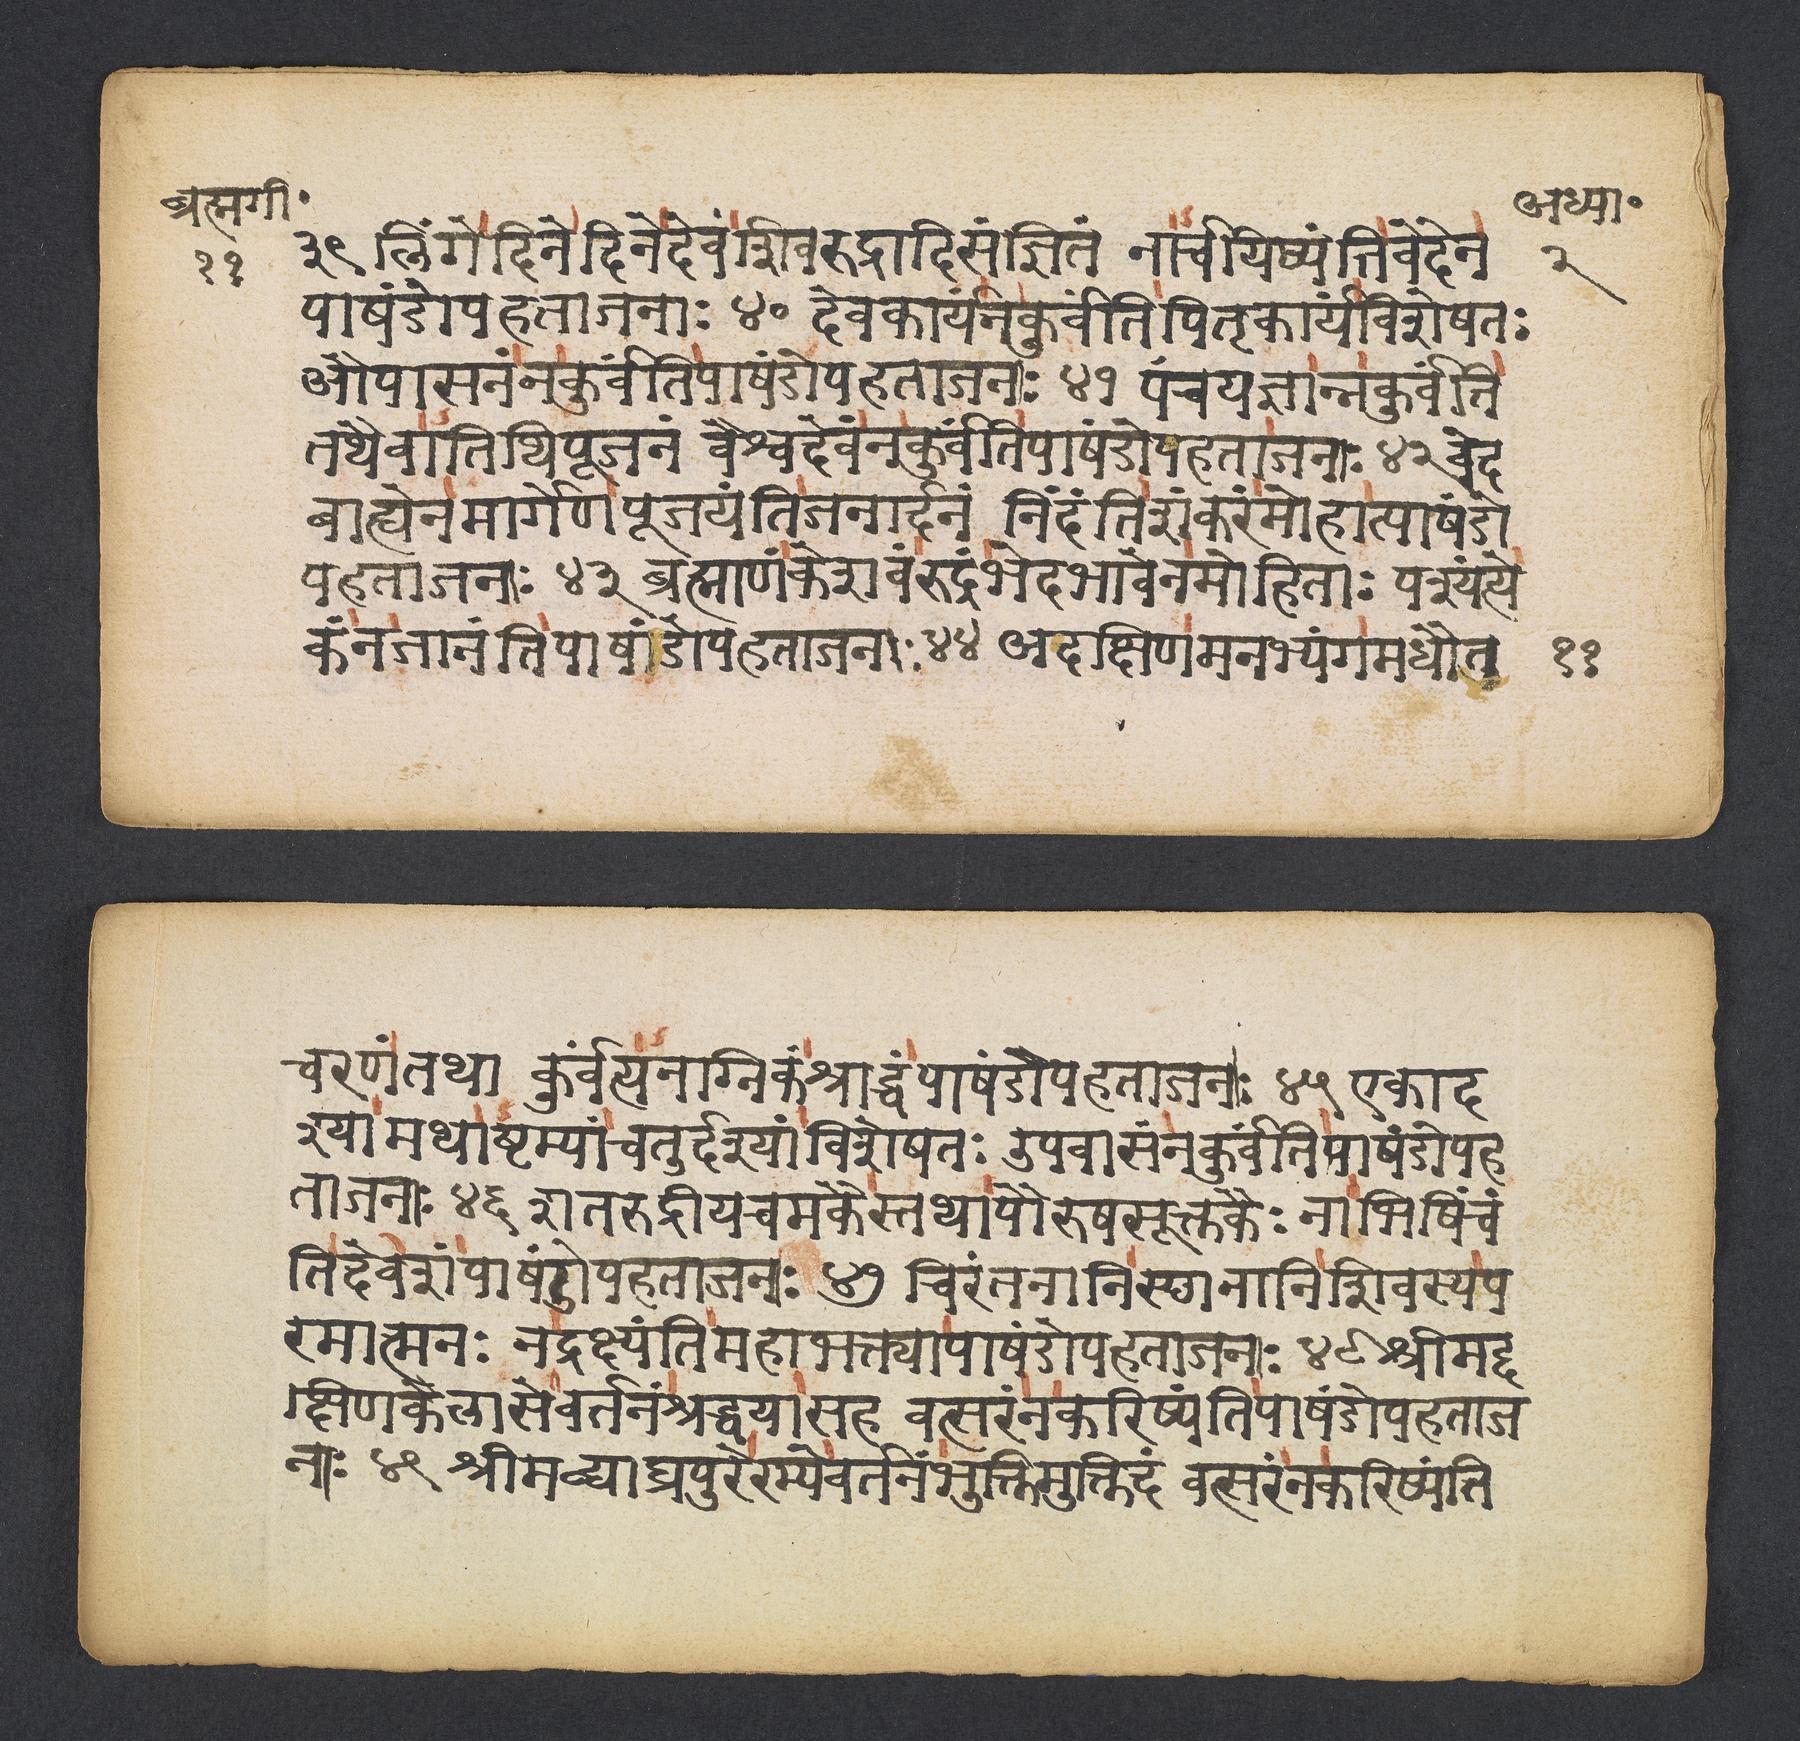 ब्रह्मगी॰
अध्या॰
११
३
३९ लिंगे दिने दिने देवं शिवरुद्रादिसंज्ञितं नार्चयिष्यंति वेदेन
पाषंडोपहताजनाः ४० देवकार्यं न कुर्वंति पितृकार्यं विशेषतः
औपासनं न कुर्वंति पाषंडोपहताजनाः ४१ पंचयज्ञान्न कुर्वंति
तथैवातिथिपूजनं वैश्वदेवं न कुर्वंति पाषंडोपहताजनाः ४२ वेद
बाह्येन मार्गेण पूजयंति जनार्दनं निंदंति शंकरं मोहात्पाषंडो
पहताजनाः ४३ ब्रह्माणं केशवं रुद्रं भेदभावेन मोहिताः पश्यंत्ये
कं न जानंति पाषांडोपहताजनाः ४४ अदक्षिणमनभ्यंगमधौत
११
चरणं तथा कुर्वंत्यनाग्निकं श्राद्धं पाषंडोपहताजनाः ४५ एकाद
श्यामथाष्टम्यां चतुर्दश्यां विशेषतः उपवासं न कुर्वंति पाषंडोपह
ताजनाः ४६ शतरुद्रीयचमकैस्तथा पौरुषसूक्तकैः नाभिषिंचं
ति देवेशं पाषंडोपहताजनाः ४७ चिरंतनानि स्थानानि शिवस्य प
रमात्मनः न द्रक्ष्यंति महाभक्त्या पाषंडोपहताजनाः ४८ श्रीमद्द
क्षिणकैलासे वर्तनं श्रद्धया सह वत्सरं न करिष्यंति पाषंडोपहताज
नाः ४९ श्रीमद्व्याघ्रपुरे रम्ये वर्तनं भुक्तिमुक्तिदं वत्सरं न करिष्यंति